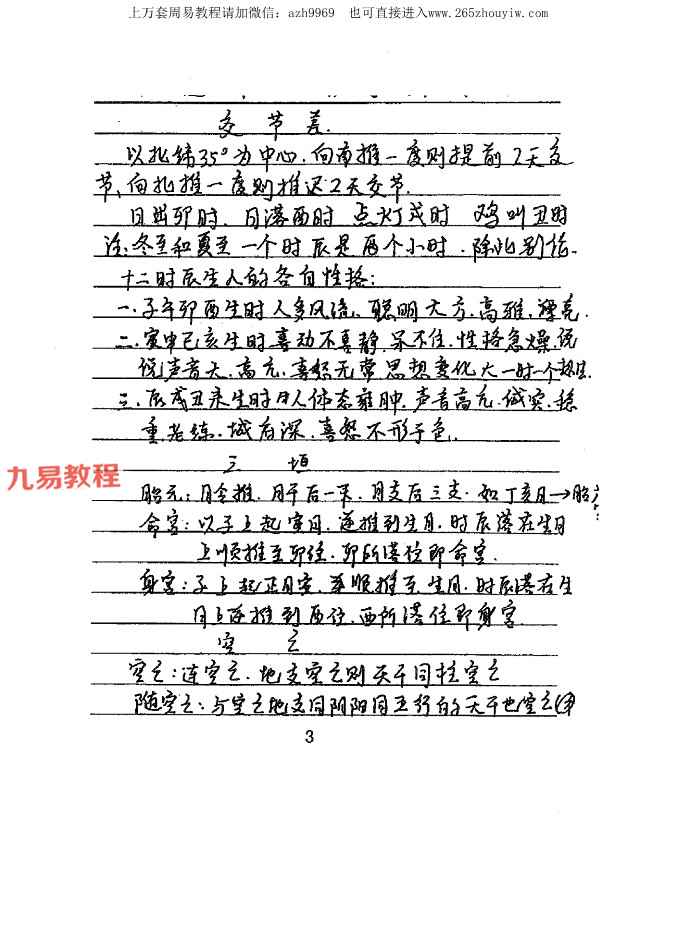 上万套周易教程请加微信：azh9969 也可直接进入www.265zhouyiw.com
交节差.
以北纬35°为中心.向南推一度则提前2天交
节、向北推一度则推迟2天交节.
日出卯时、日落酉时 点灯戌时 鸡叫丑时
注:冬至和夏至一个时辰是两个小时.除此别论.
十二时辰生人的各自性格:
一.子午卯酉生时人多风流、聪明大方.高雅.漂亮.
二.寅申巳亥生时喜动不喜静.呆不住.性格急燥.说
话声音大.高亢.喜怒无常 思想变化大一时一个
三.辰戌丑未生时人体态雍肿.声音高亢.诚实.稳
重老练.城府深.喜怒不形于色.
三 垣
九易教程
胎元:月令推.月干后一来.月支后三支.如丁亥月→胎
命宫:以子上起寅月.逆推到生月.时辰落在生月
上顺推至卯位.卯所落位即命宫.
身宫:子上起正月寅.顺推至生月.时辰落在生
月上逆推到酉位.酉所落位即身宫.
空 亡
空亡:连空亡.地支空亡则天干同柱空亡
随空亡:与空亡地支同阴阳同五行的天干也空亡(甲
3